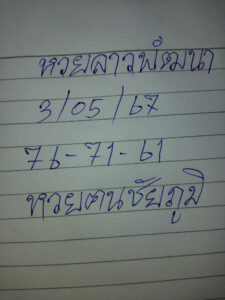 หวยลาวพัฒนา
3/05/67
76-71-61
หวยฅนชัยภูมิ